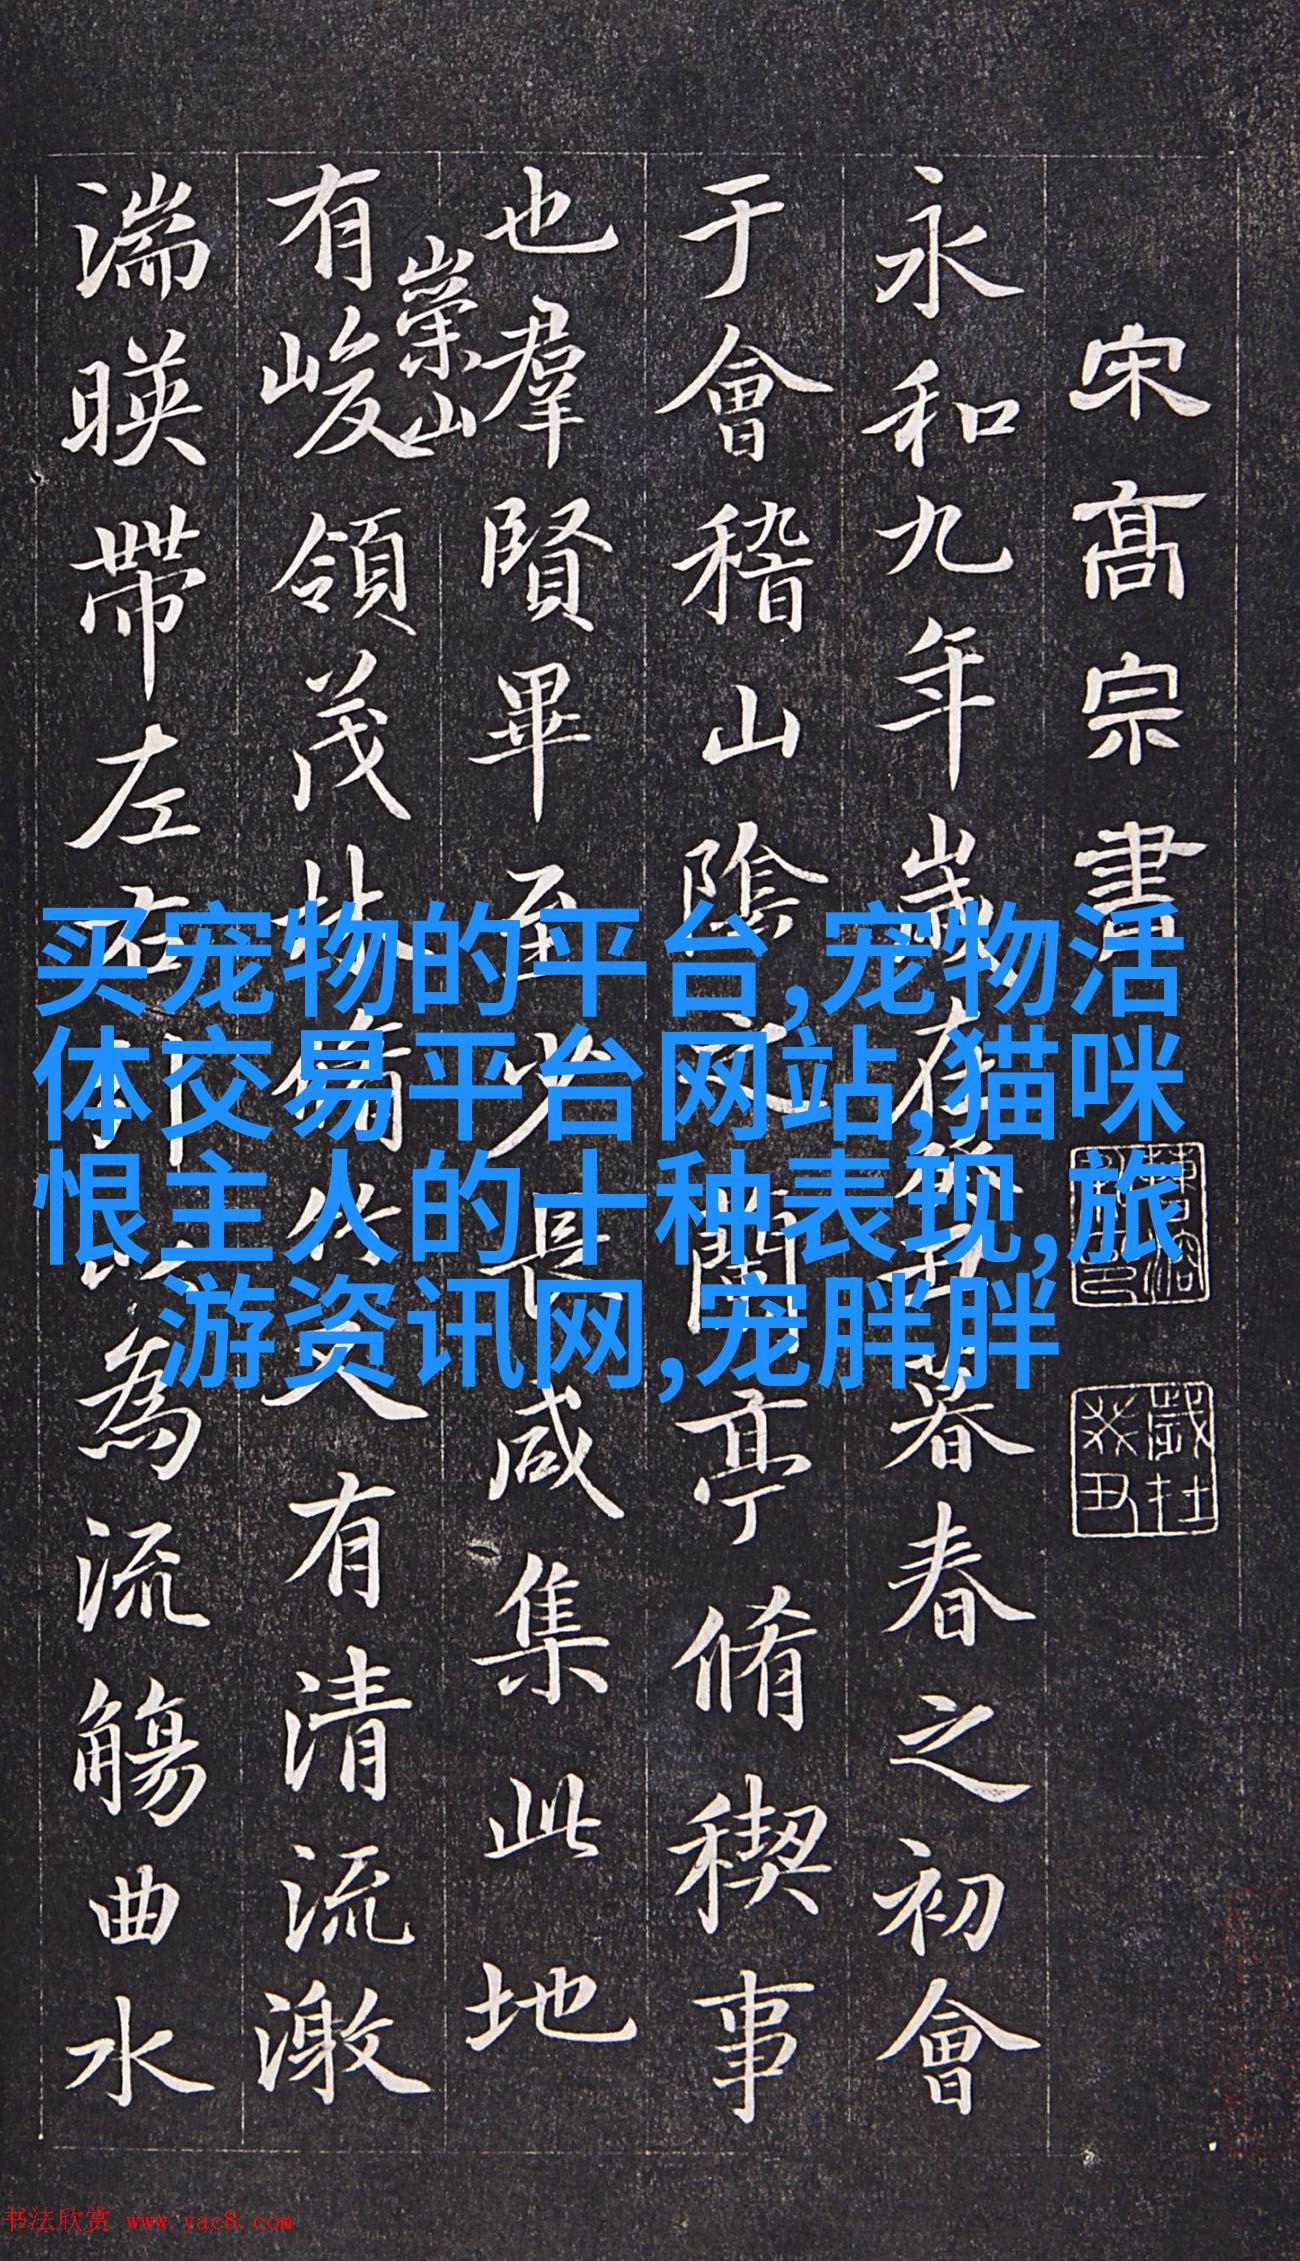 宋髙宗書
歲在癸丑
永和九年歲在癸丑暮春之初會
于會稽山陰之蘭亭脩稧事
也羣賢畢至少長咸集此地
有崇山峻領茂林脩竹又有清流激
湍暎帶左右引以為流觴曲水
买宠物的平台,宠物活
体交易平台网站,猫咪
恨主人的十种表现,旅
游资讯网,宠胖胖
书法欣赏 www.yac8.com